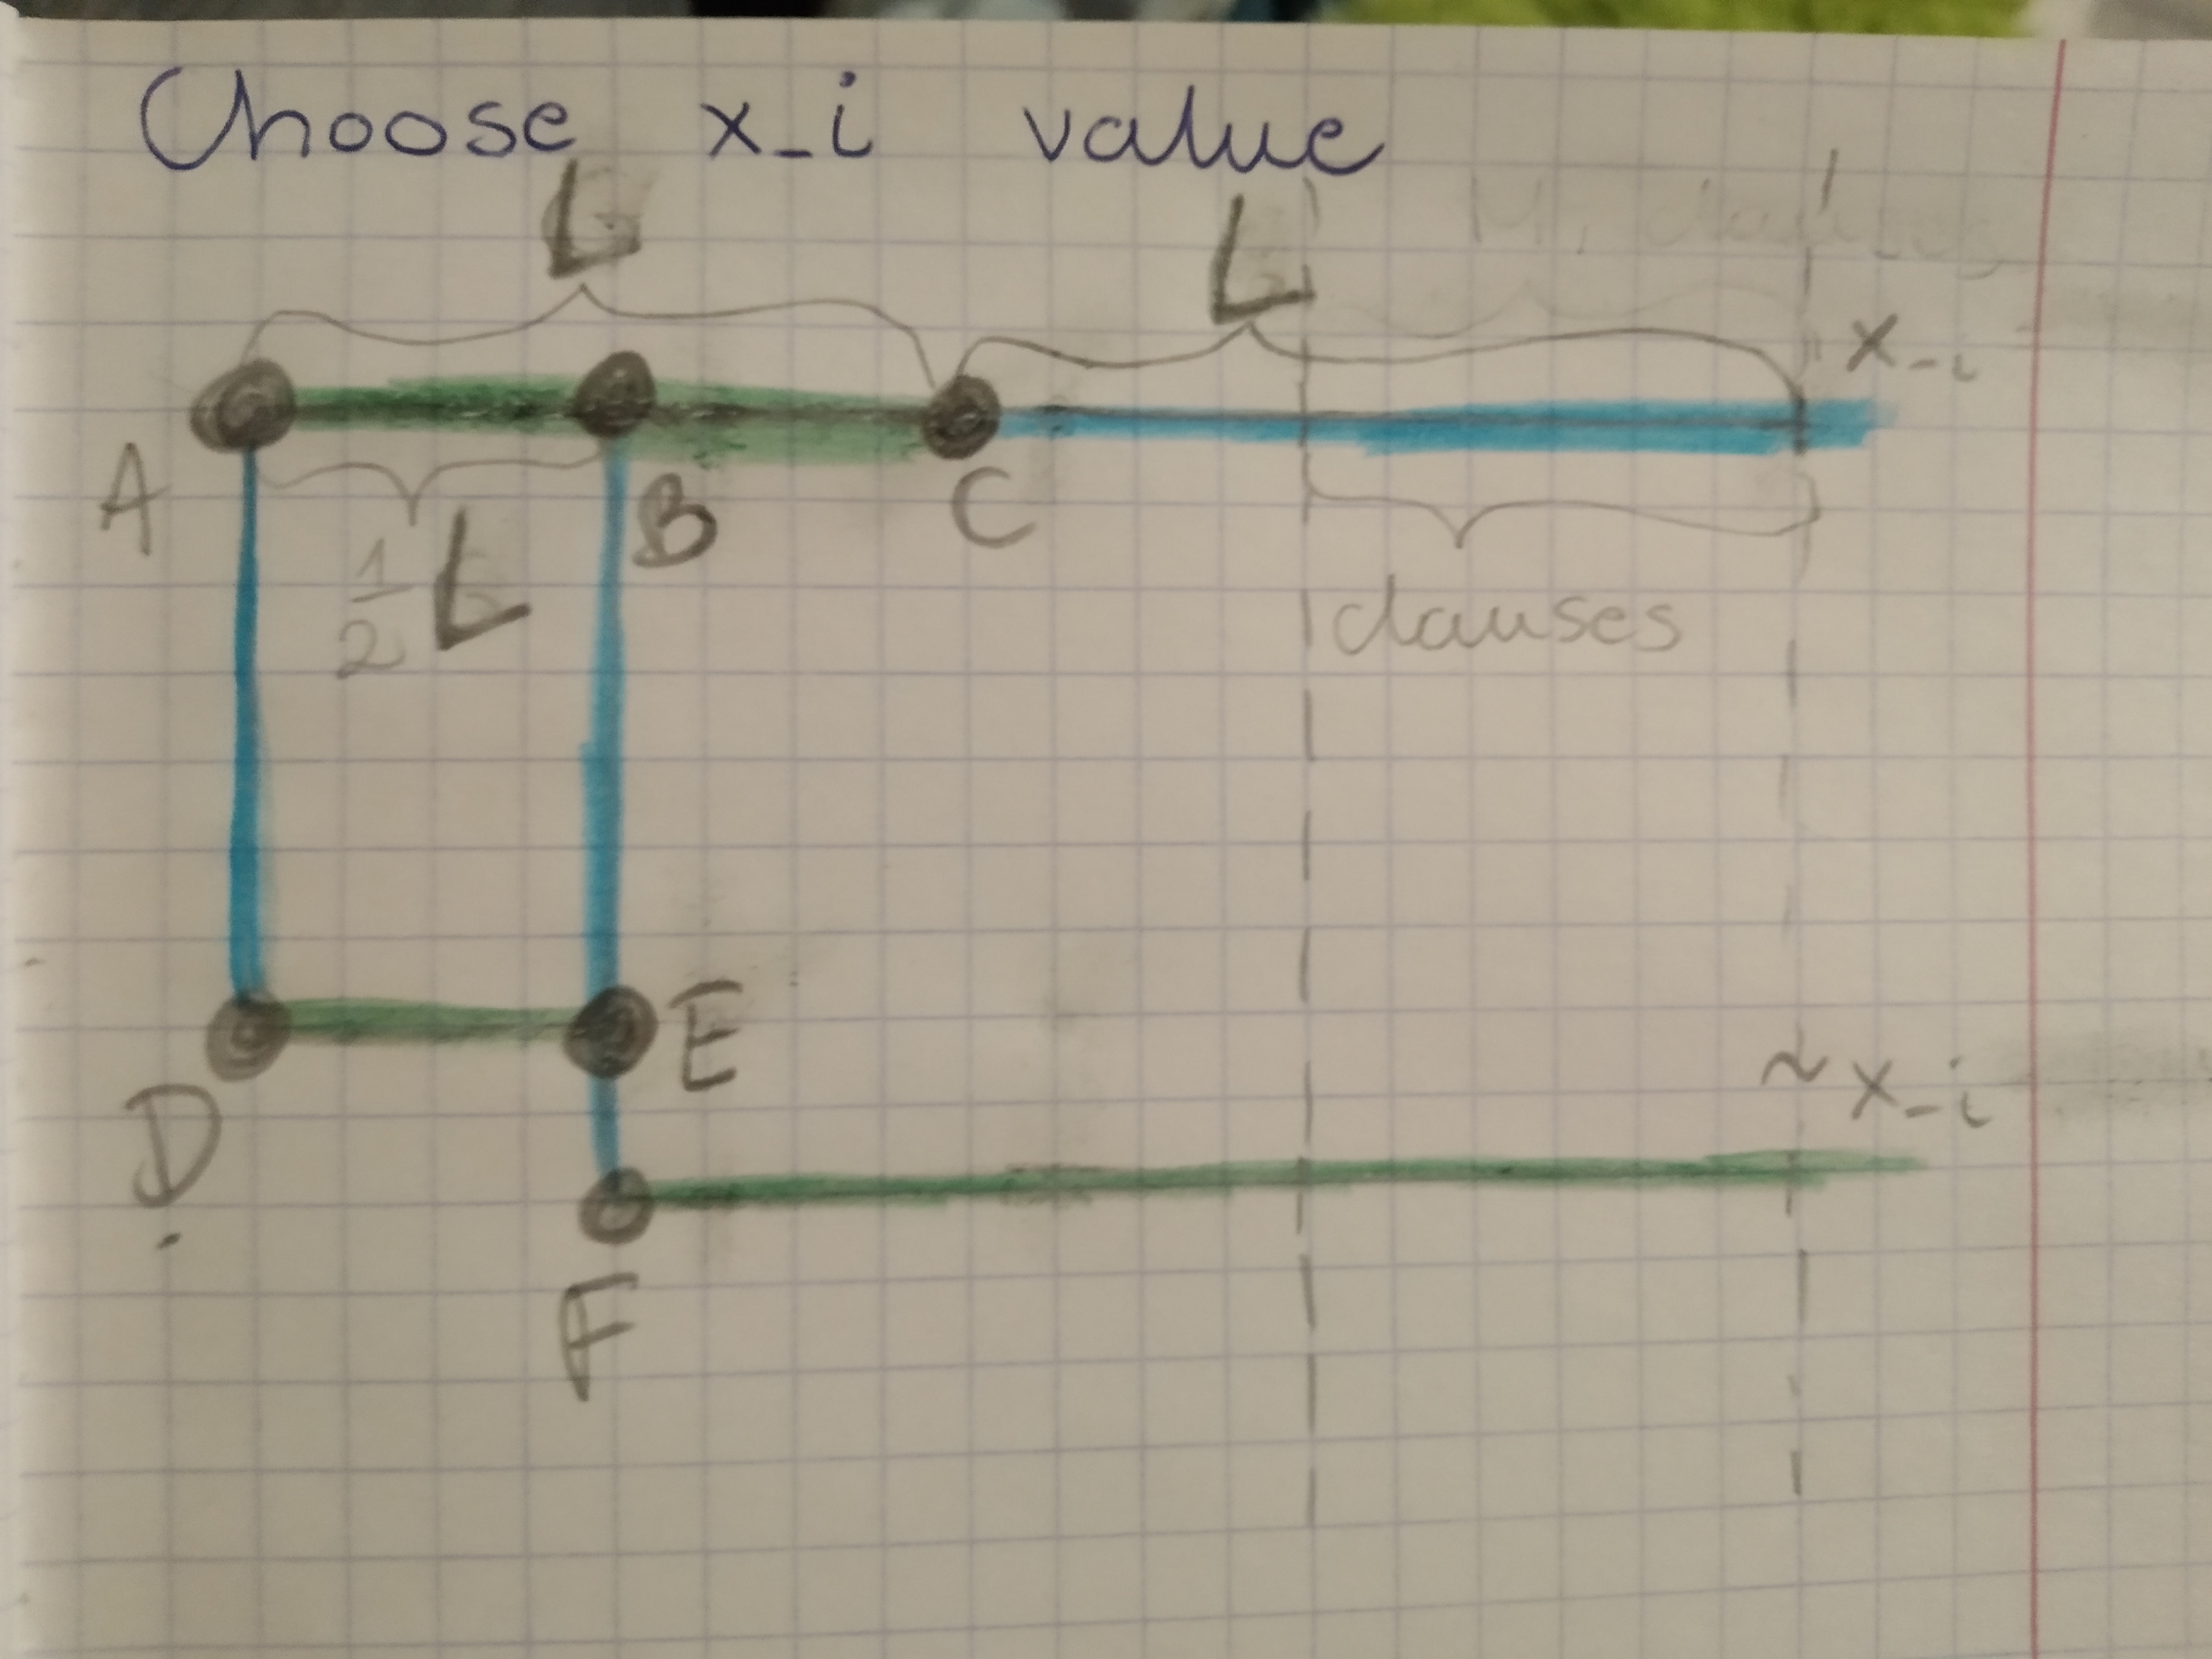 Choose x_i value
L L
x_i
A B C
1/2 L
clauses
D E
~x_i
F